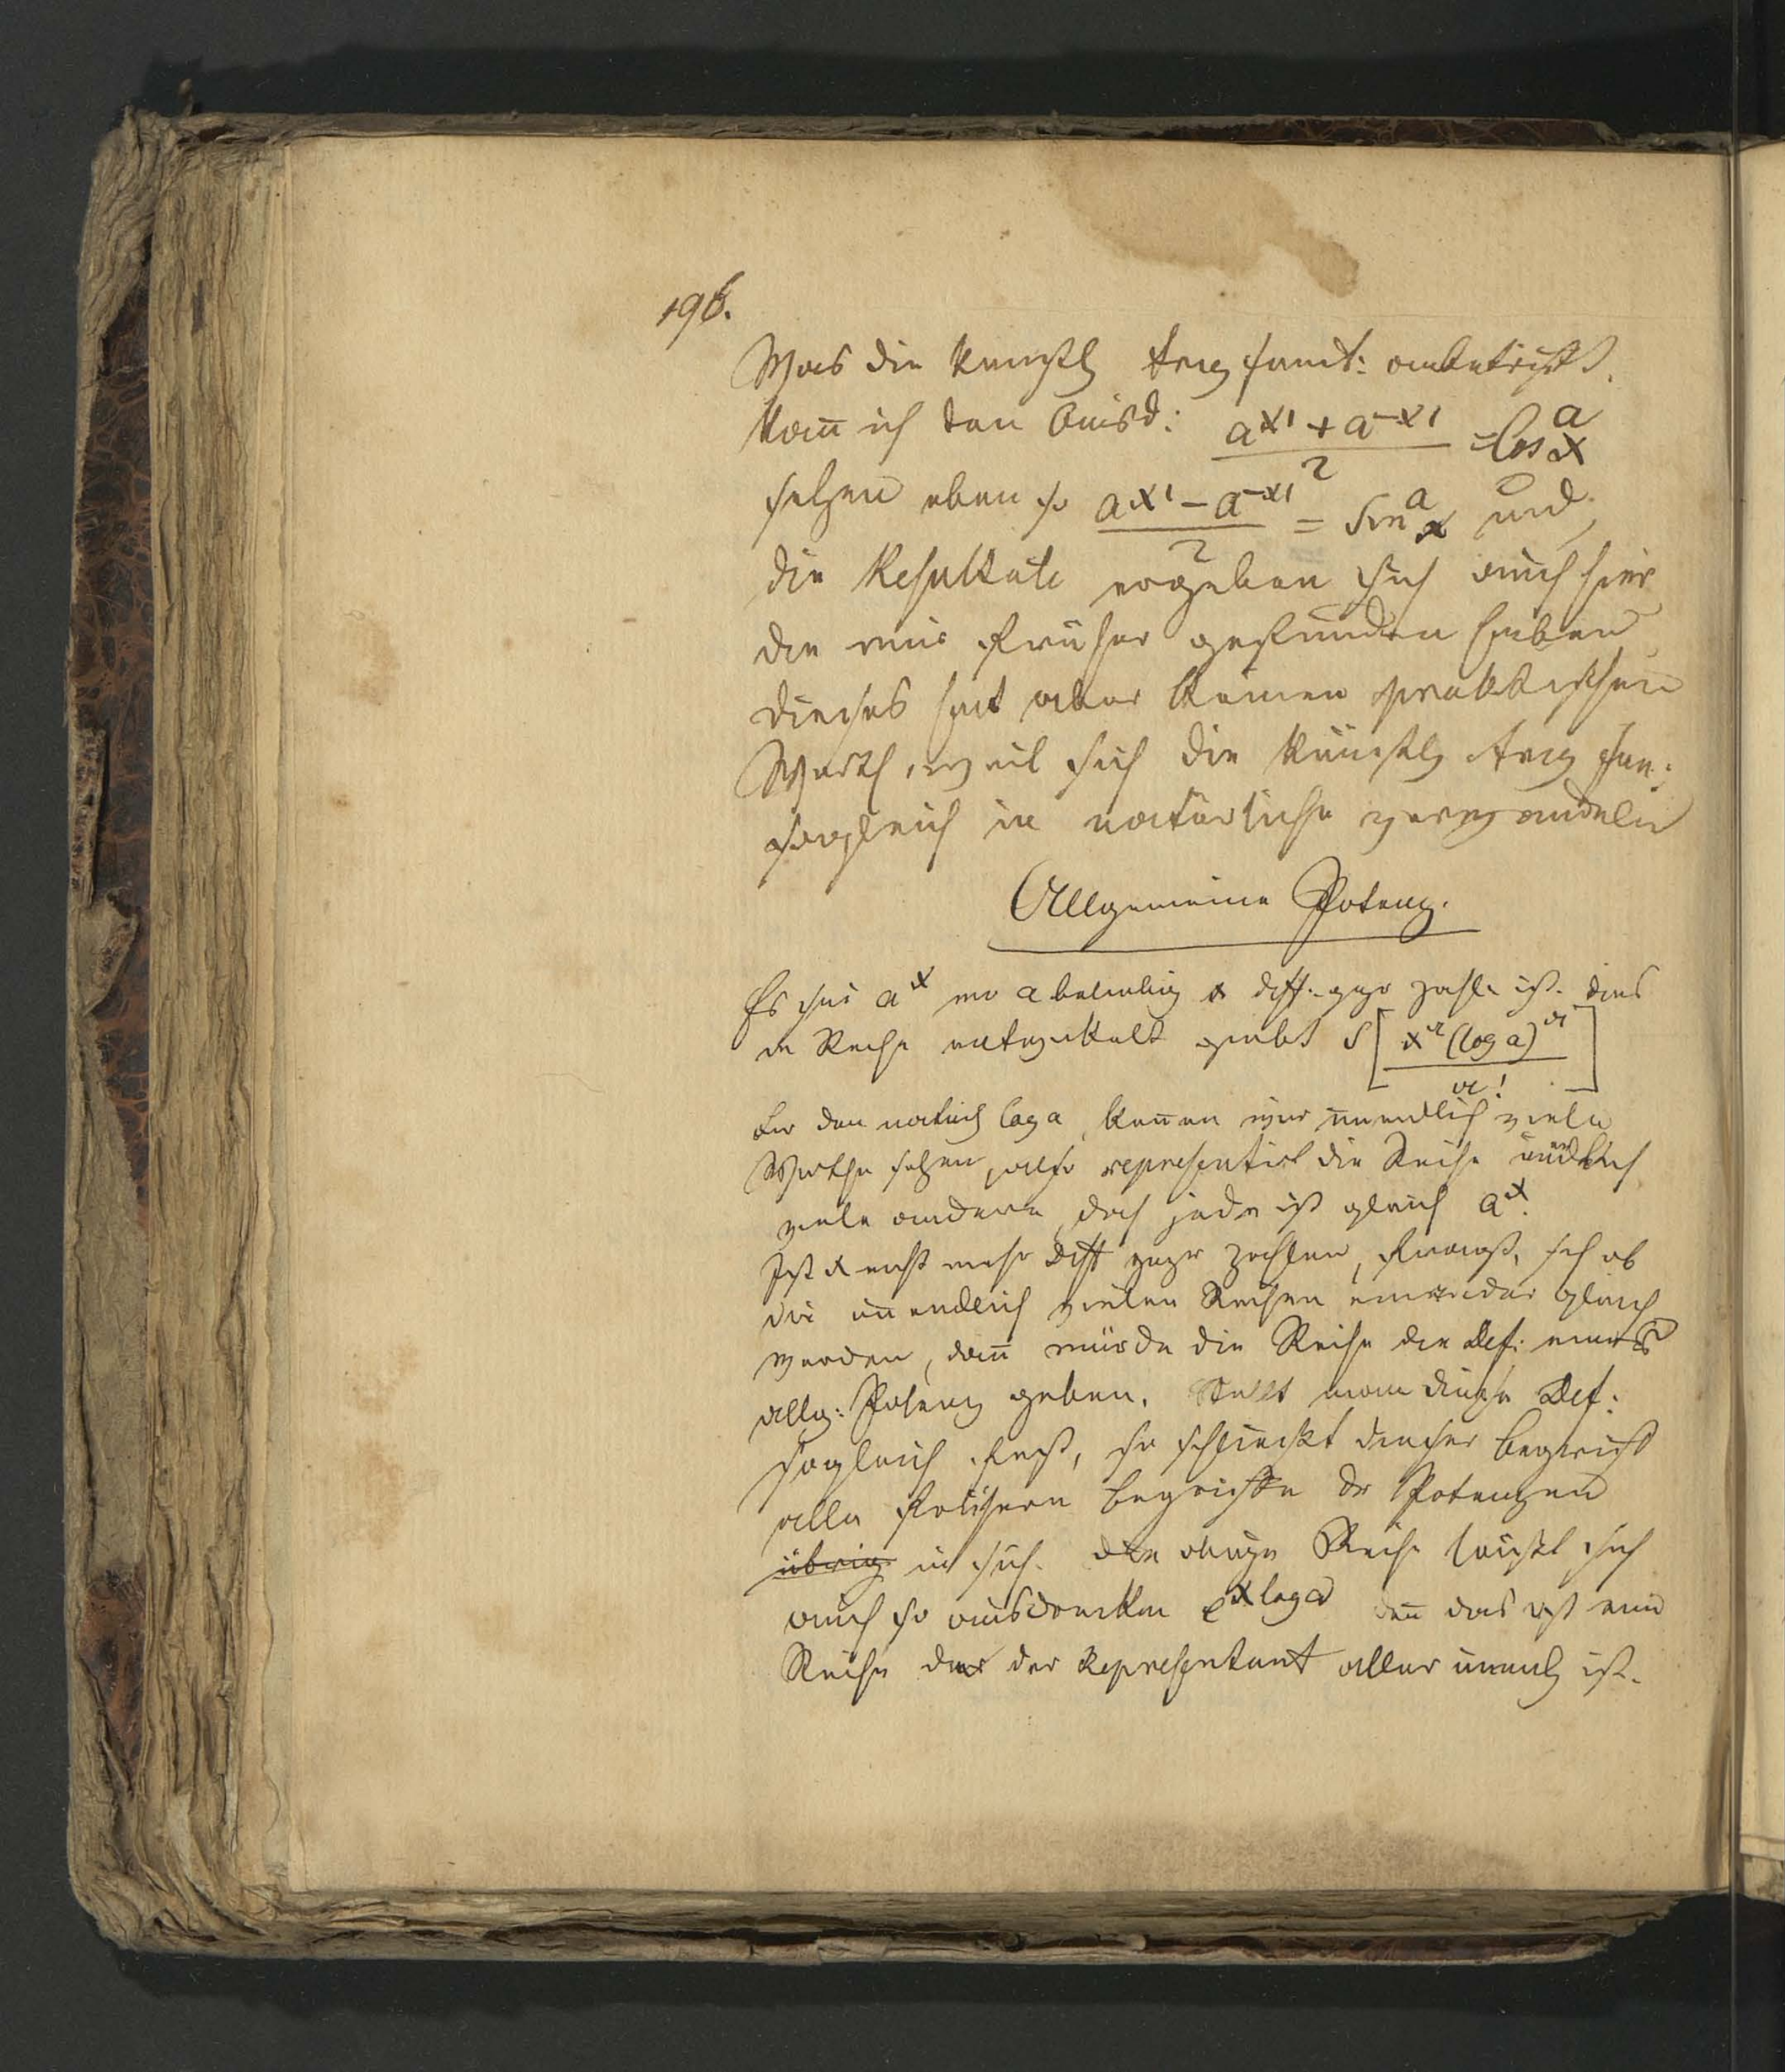 196.
Was die künstl Trig funct: anbetrifft,
kan̄ ich den Ausd: (a^{x1} + a^{-x1})/2 = Cos^a x
setzen eben so (a^{x1} - a^{-x1})/2 = Sin^a x und
die Resultate ergeben sich auch hier
die wir früher gefunden haben
dieses hat aber keinen praktischen
Werth, weil sich die künstl Trig fun:
sogleich in natürliche verwandeln
Allgemeine Potenz.
Es sei a^x wo a beliebig x diff. ganze Zahl ist. dies
in Reihe entwickelt giebt S[x^n (log a)^n / n!]
für den natürl log a, kön̄en wir unendlich viele
Werthe setzen, also representirt die Reihe unendlich
viele andere, doch jede ist gleich a^x.
Ist x nicht mehr Diff ganzer Zahlen, fragts, sich ob
die un̄endlich vielen Reihen einander gleich
werden, dan̄ würde die Reihe die Def: einer
allg: Potenz geben. Stellt man diese Def:
sogleich fest, so schliesst dieser Begriff
alle frühern Begriffe der Potenzen
übrig in sich. die obige Reihe lässt sich
auch so ausdrücken e^{x log a} den̄ das ist eine
Reihe der Representant aller unendl ist.